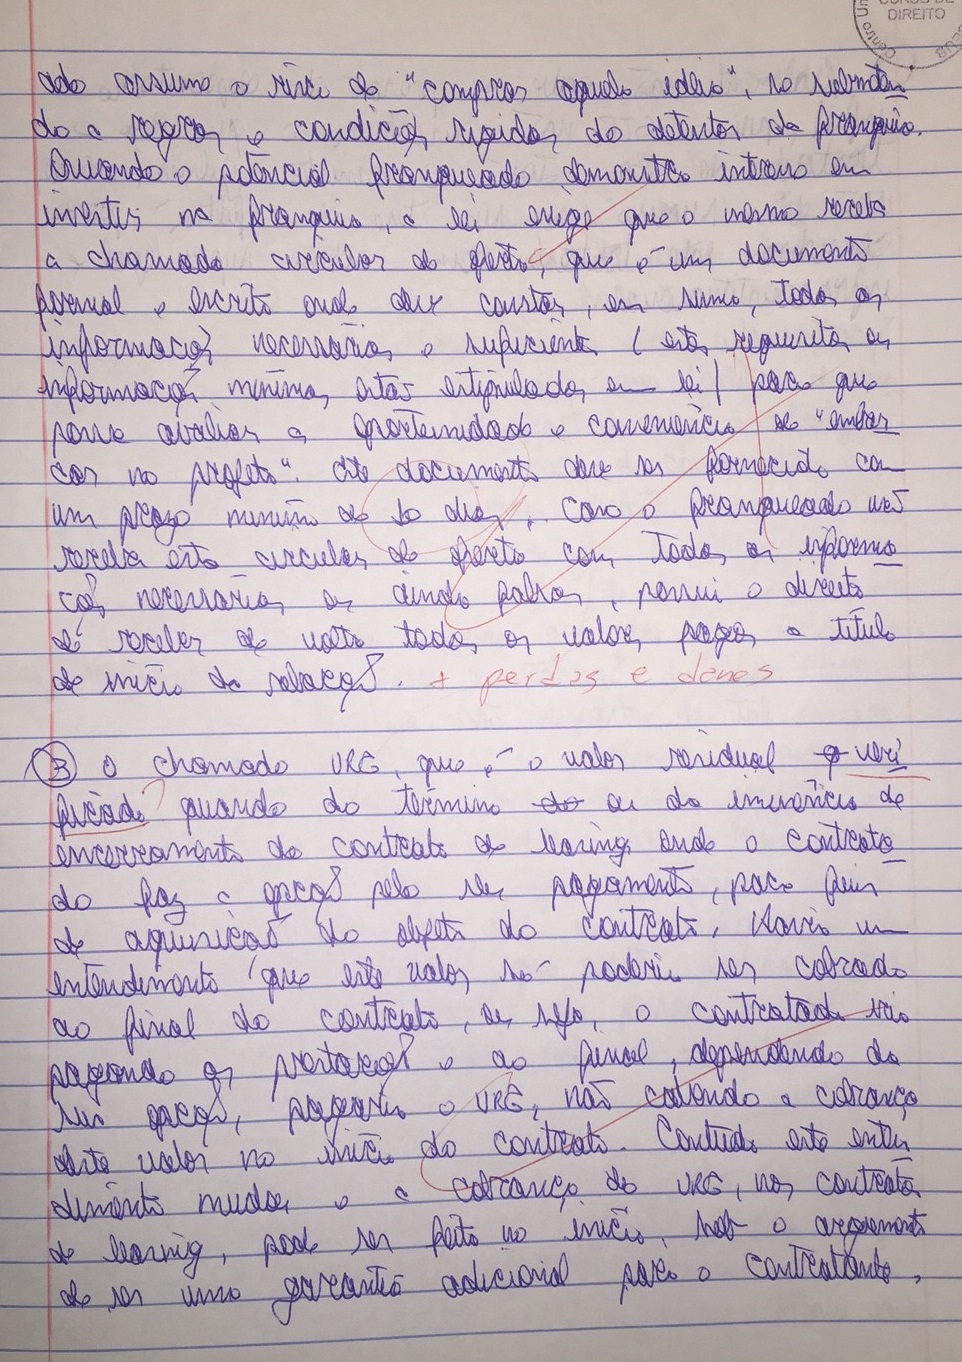 CURSO DE
DIREITO
Centro Un
CEUB
ado assume o risco de "comprar aquela ideia", se submeten
do a regras e condições rígidas do detentor da franquia.
Quando o potencial franqueado demonstra interesse em
investir na franquia, a lei exige que o mesmo receba
a chamada circular de oferta, que é um documento
formal e escrito onde deve constar, em suma, todas as
informações necessárias e suficientes (estes requisitos ou
informações mínimas estão estipulados em lei) para que
possa avaliar a oportunidade e conveniência de "embar
car no projeto". Este documento deve ser fornecido com
um prazo mínimo de 10 dias. Caso o franqueado não
receba esta circular de oferta com todas as informa
ções necessárias ou sendo falsas, possui o direito
de receber de volta todos os valores pagos a título
de início da relação. + perdas e danos
3 O chamado VRG, que é o valor residual veri
ficado ? quando do término ou da iminência de
encerramento do contrato de leasing onde o contrata
do faz a opção pelo seu pagamento, para fins
de aquisição do objeto do contrato. Havia um
entendimento que este valor só poderia ser cobrado
ao final do contrato, ou seja, o contratado iria
pagando as prestações e ao final, dependendo da
sua opção, pagaria o VRG, não cabendo a cobrança
deste valor no início do contrato. Contudo este enten
dimento mudou e a cobrança do VRG, nos contratos
de leasing, pode ser feita no início, sob o argumento
de ser uma garantia adicional para o contratante,